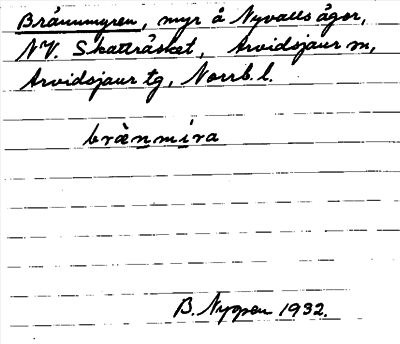 Brännmyren, myr å Nyvalls ägor,
NV. Skatträsket, Arvidsjaur m,
Arvidsjaur tg, Norrb. l.
brænmira
B. Nygren 1932.